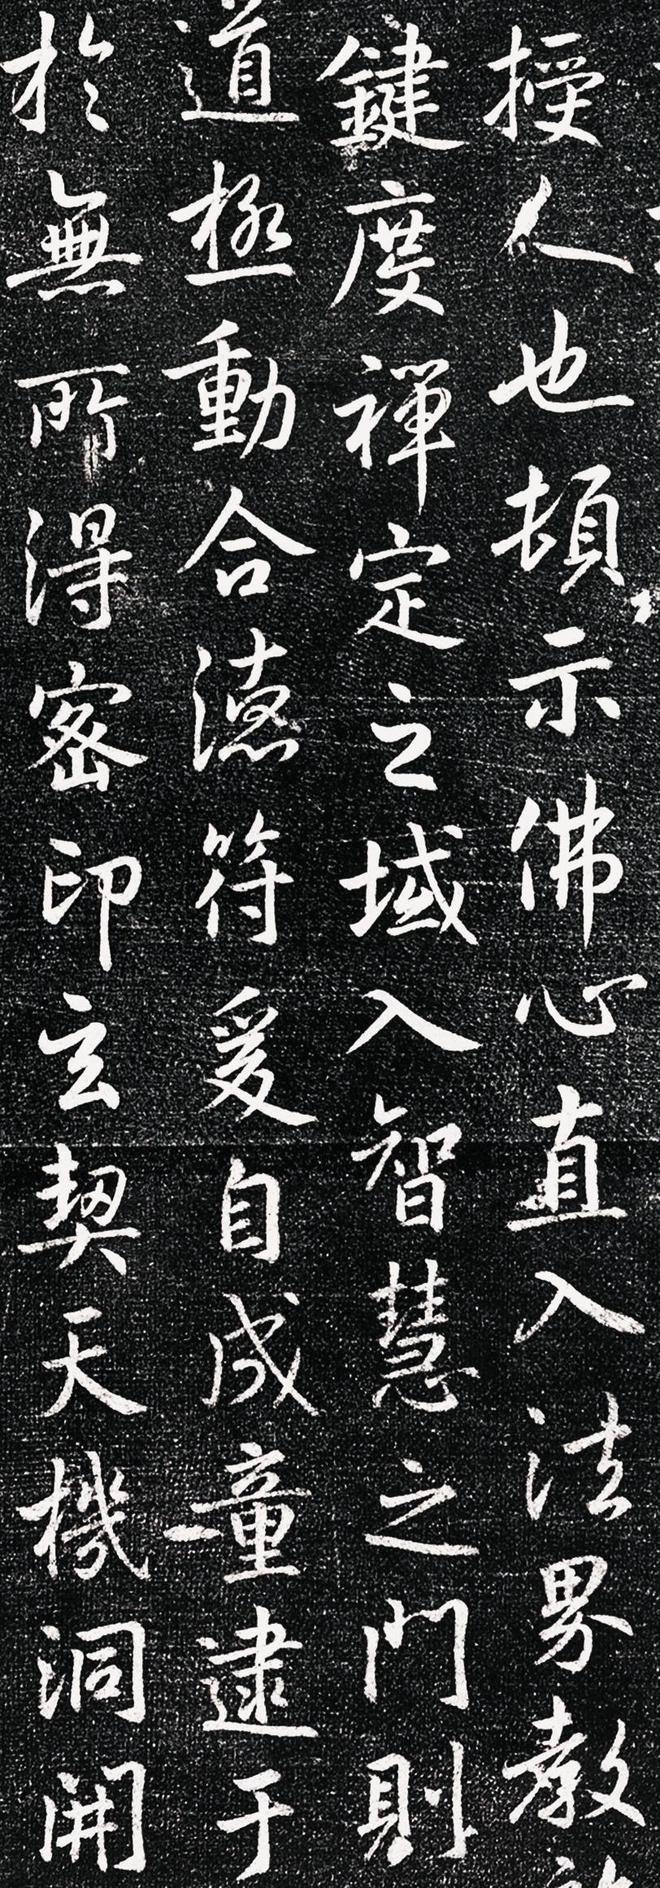 授人也頓示佛心直入法界教
鍵度禪定之域入智慧之門則
道極動合德符爰自成童逮于
於無所得密印玄契天機洞開